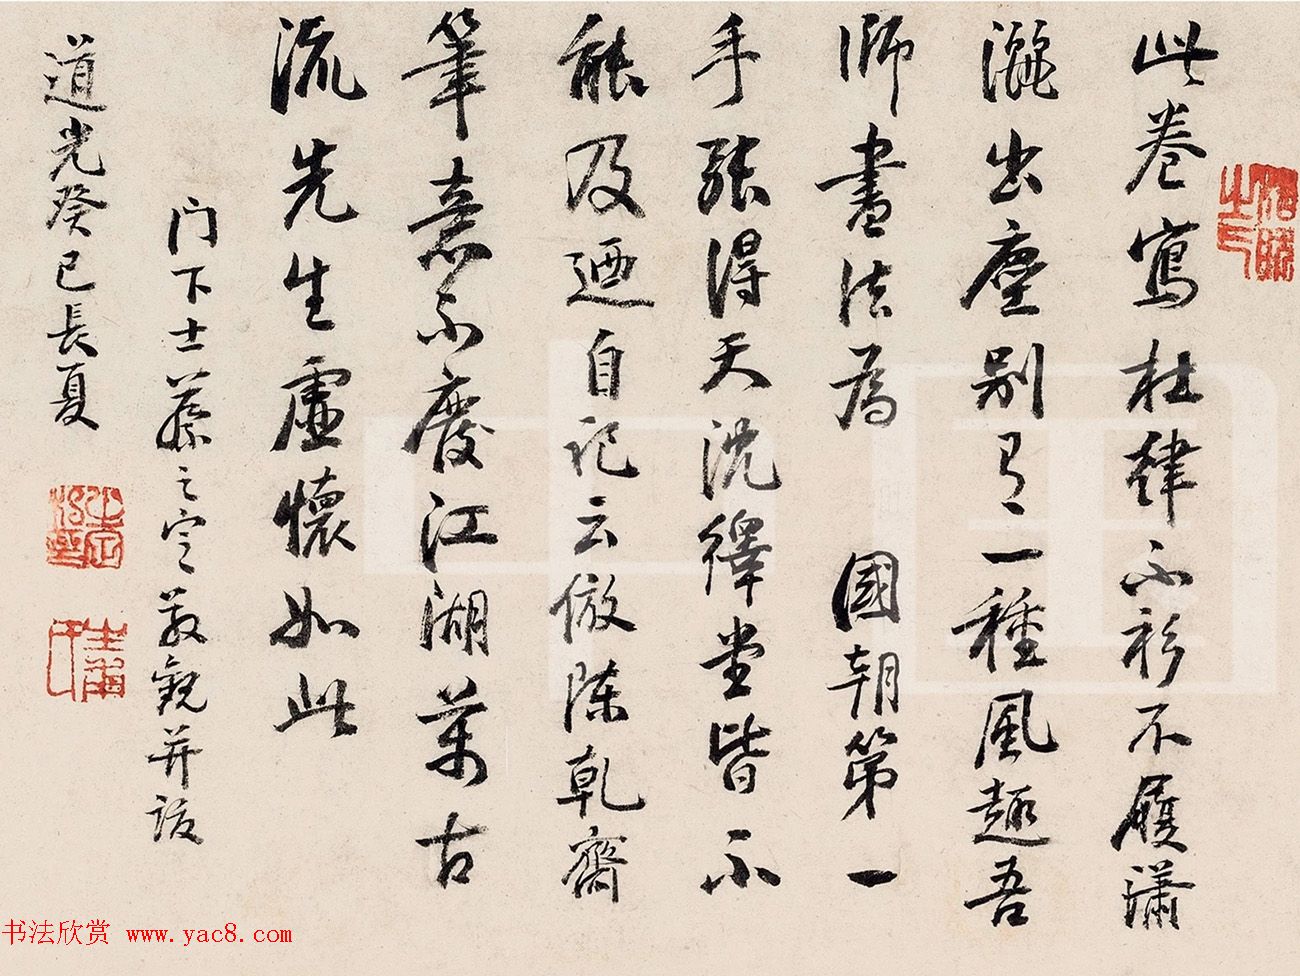 此卷寫杜律不衫不履瀟
灑出塵別有一種風趣吾
師書法為 國朝第一
手張得天沈繹堂皆不
能及迺自記云倣陳乾齋
筆意不廢江湖萬古
流先生虛懷如此
門下士蔡之定敬觀并跋
道光癸巳長夏
书法欣赏 www.yac8.com